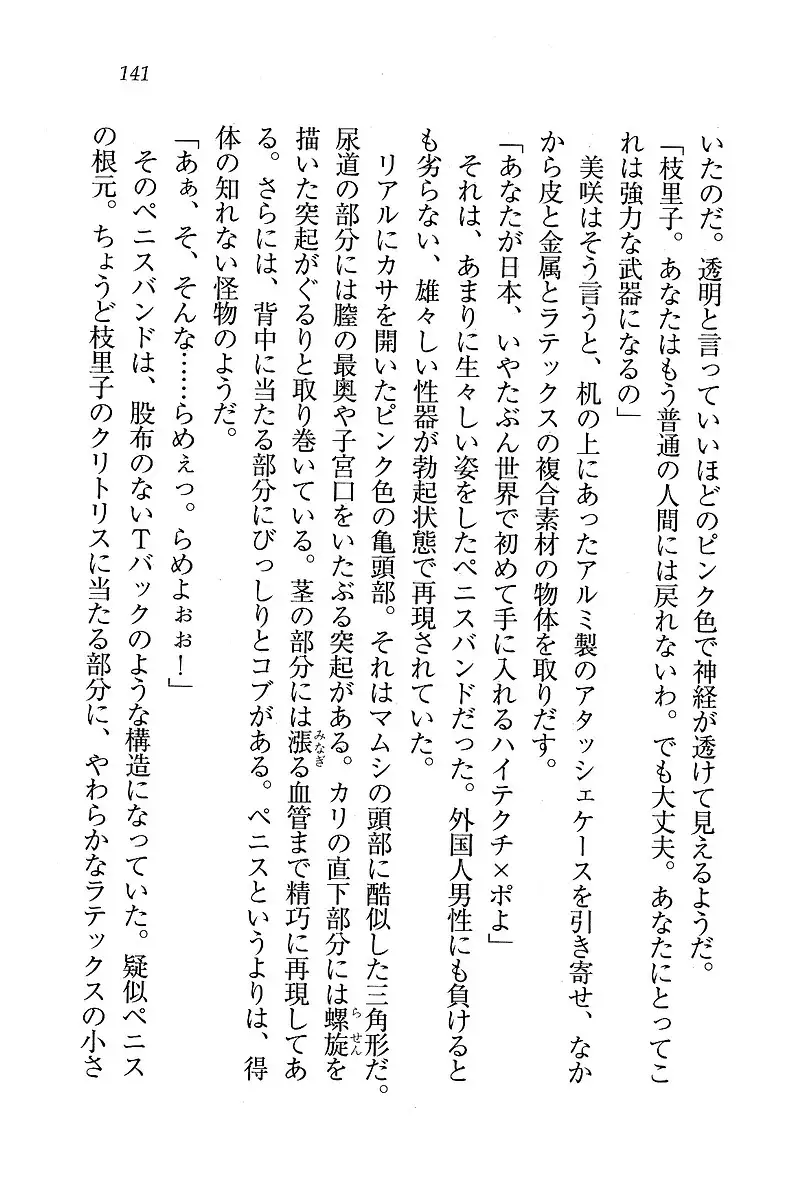 141
いたのだ。透明と言っていいほどのピンク色で神経が透けて見えるようだ。
「枝里子。あなたはもう普通の人間には戻れないわ。でも大丈夫。あなたにとってこ
れは強力な武器になるの」
美咲はそう言うと、机の上にあったアルミ製のアタッシェケースを引き寄せ、なか
から皮と金属とラテックスの複合素材の物体を取りだす。
「あなたが日本、いやたぶん世界で初めて手に入れるハイテクチ×ポよ」
それは、あまりに生々しい姿をしたペニスバンドだった。外国人男性にも負けると
も劣らない、雄々しい性器が勃起状態で再現されていた。
リアルにカサを開いたピンク色の亀頭部。それはマムシの頭部に酷似した三角形だ。
尿道の部分には膣の最奥や子宮口をいたぶる突起がある。カリの直下部分には螺旋を
描いた突起がぐるりと取り巻いている。茎の部分には漲る血管まで精巧に再現してあ
る。さらには、背中に当たる部分にびっしりとコブがある。ペニスというよりは、得
体の知れない怪物のようだ。
「あぁ、そ、そんな……らめぇっ。らめよぉぉ！」
そのペニスバンドは、股布のないTバックのような構造になっていた。疑似ペニス
の根元。ちょうど枝里子のクリトリスに当たる部分に、やわらかなラテックスの小さ